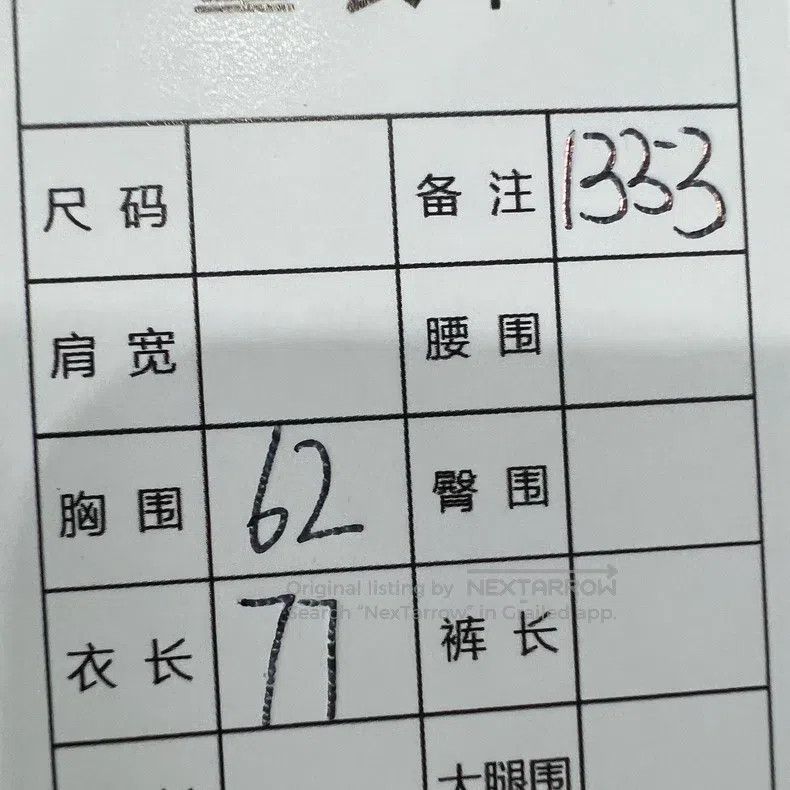 尺码 备注 1353
肩宽 腰围
胸围 62 臀围
Original listing by NEXTARROW
Search "NexTarrow" in Grailed app.
衣长 77 裤长
大腿围